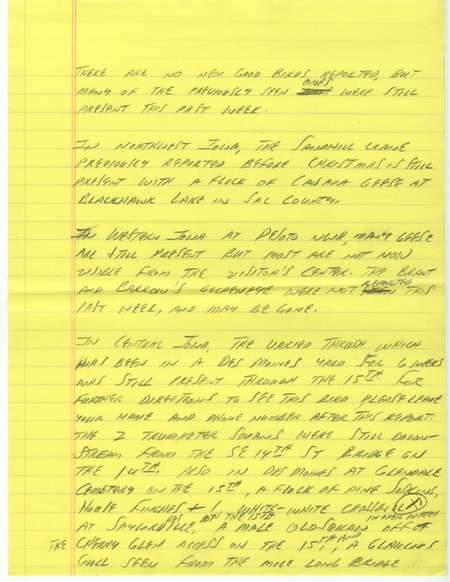 THERE ARE NO NEW GOOD BIRDS REPORTED, BUT
MANY OF THE PREVIOUSLY SEEN ONES WERE STILL
PRESENT THIS PAST WEEK.
IN NORTHWEST IOWA, THE SANDHILL CRANE
PREVIOUSLY REPORTED BEFORE CHRISTMAS IS STILL
PRESENT WITH A FLOCK OF CANADA GEESE AT
BLACKHAWK LAKE IN SAC COUNTY.
IN WESTERN IOWA AT DESOTO NWR, MANY GEESE
ARE STILL PRESENT BUT MOST ARE NOT NOW
VISIBLE FROM THE VISITOR'S CENTER. THE BRANT
AND BARROW'S GOLDENEYE WERE NOT REPORTED THIS
PAST WEEK, AND MAY BE GONE.
IN CENTRAL IOWA, THE VARIED THRUSH WHICH
HAS BEEN IN A DES MOINES YARD FOR 6 WEEKS
WAS STILL PRESENT THROUGH THE 15TH. FOR
FURTHER DIRECTIONS TO SEE THIS BIRD PLEASE LEAVE
YOUR NAME AND PHONE NUMBER AFTER THIS REPORT.
THE 2 TRUMPETER SWANS WERE STILL DOWN-
STREAM FROM THE SE 14TH ST BRIDGE ON
THE 14TH. ALSO IN DES MOINES AT GLENDALE
CEMETERY ON THE 15TH, A FLOCK OF PINE SISKINS,
HOUSE FINCHES + 1 WHITE-WINGED CROSSBILL
AT SAYLORVILLE, ON THE 15TH IN OPEN WATER
A MALE OLDSQUAW OFF OF
THE CHERRY GLEN ACCESS ON THE 15TH, AND A GLAUCOUS
GULL SEEN FROM THE MILE LONG BRIDGE